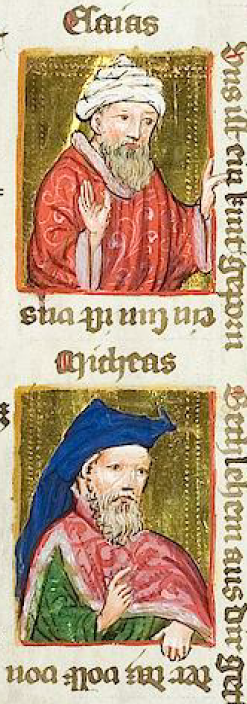 Esaias
Uns ist ein kint geporn
ein sun ist uns
Micheas
lehem aus dir get
ter daz volk von